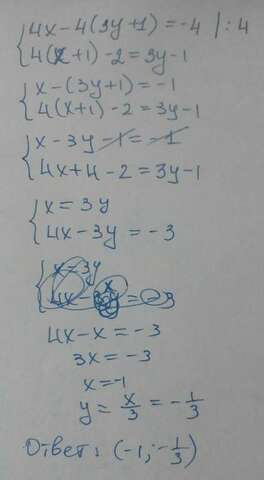 {4x-4(3y+1)=-4 |:4
4(x+1)-2=3y-1
{x-(3y+1)=-1
4(x+1)-2=3y-1
{x-3y-1=-1
4x+4-2=3y-1
{x=3y
4x-3y=-3
{x=3y
4x-x=-3
3x=-3
x=-1
y=x/3=-1/3
Ответ: (-1;-1/3)